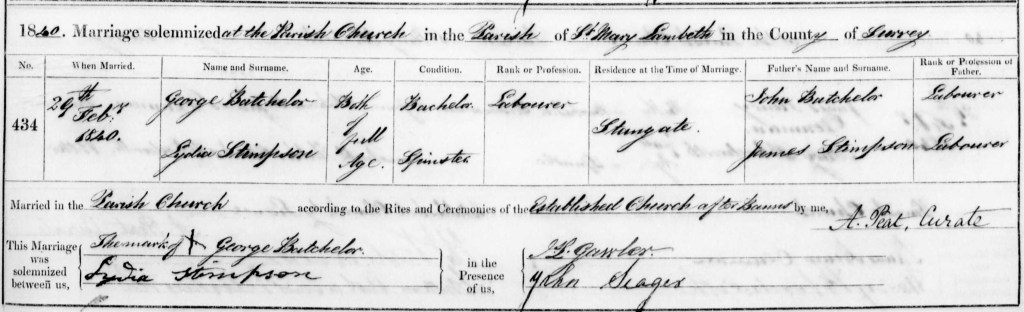 1840. Marriage solemnized at the Parish Church in the Parish of St Mary Lambeth in the County of Surrey
No. When Married. Name and Surname. Age. Condition. Rank or Profession. Residence at the Time of Marriage. Father's Name and Surname. Rank or Profession of Father.
434 29th Feby 1840. George Batchelor Both of full Age. Bachelor Labourer Stangate. John Batchelor Labourer
Lydia Stimpson Spinster James Stimpson Labourer
Married in the Parish Church according to the Rites and Ceremonies of the Established Church after Banns by me, A. Peat, Curate
This Marriage was solemnized between us, The mark of X George Batchelor. in the Presence of us, Gawler.
Lydia Stimpson John Seager